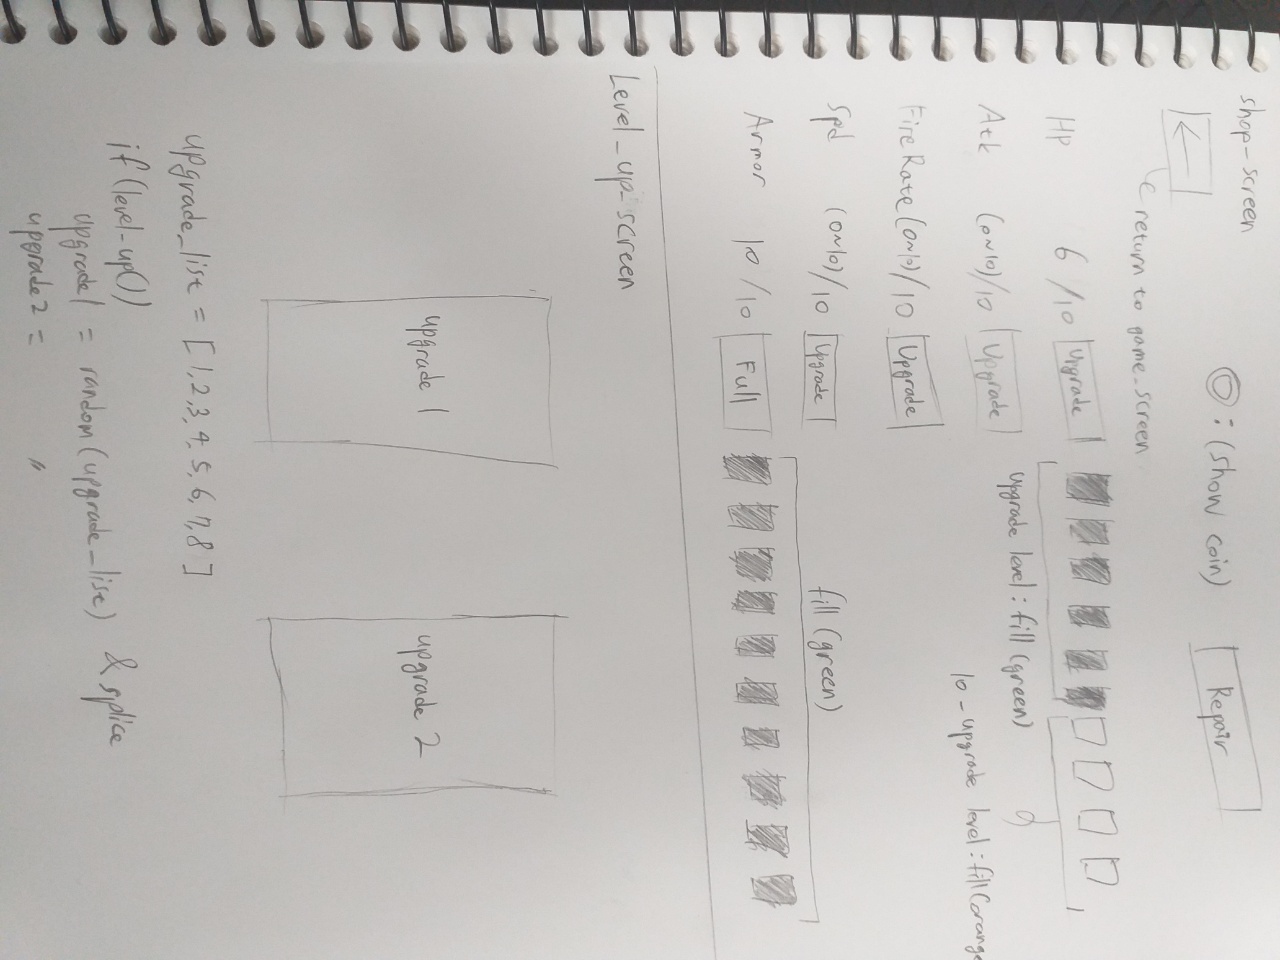 shop-screen
◎ : (show coin)
Repair
←
return to game-screen
Hp 6/10 Upgrade
upgrade level : fill (green)
10 - upgrade level : fill (orange
Atk (0~10)/10 Upgrade
Fire Rate (0~10)/10 Upgrade
Spd (0~10)/10 Upgrade
fill (green)
Armor 10/10 Full
Level-up-screen
upgrade 1
upgrade 2
upgrade_list = [1,2,3,4,5,6,7,8]
if (level-up())
upgrade1 = random (upgrade_list) & splice
upgrade2 = "